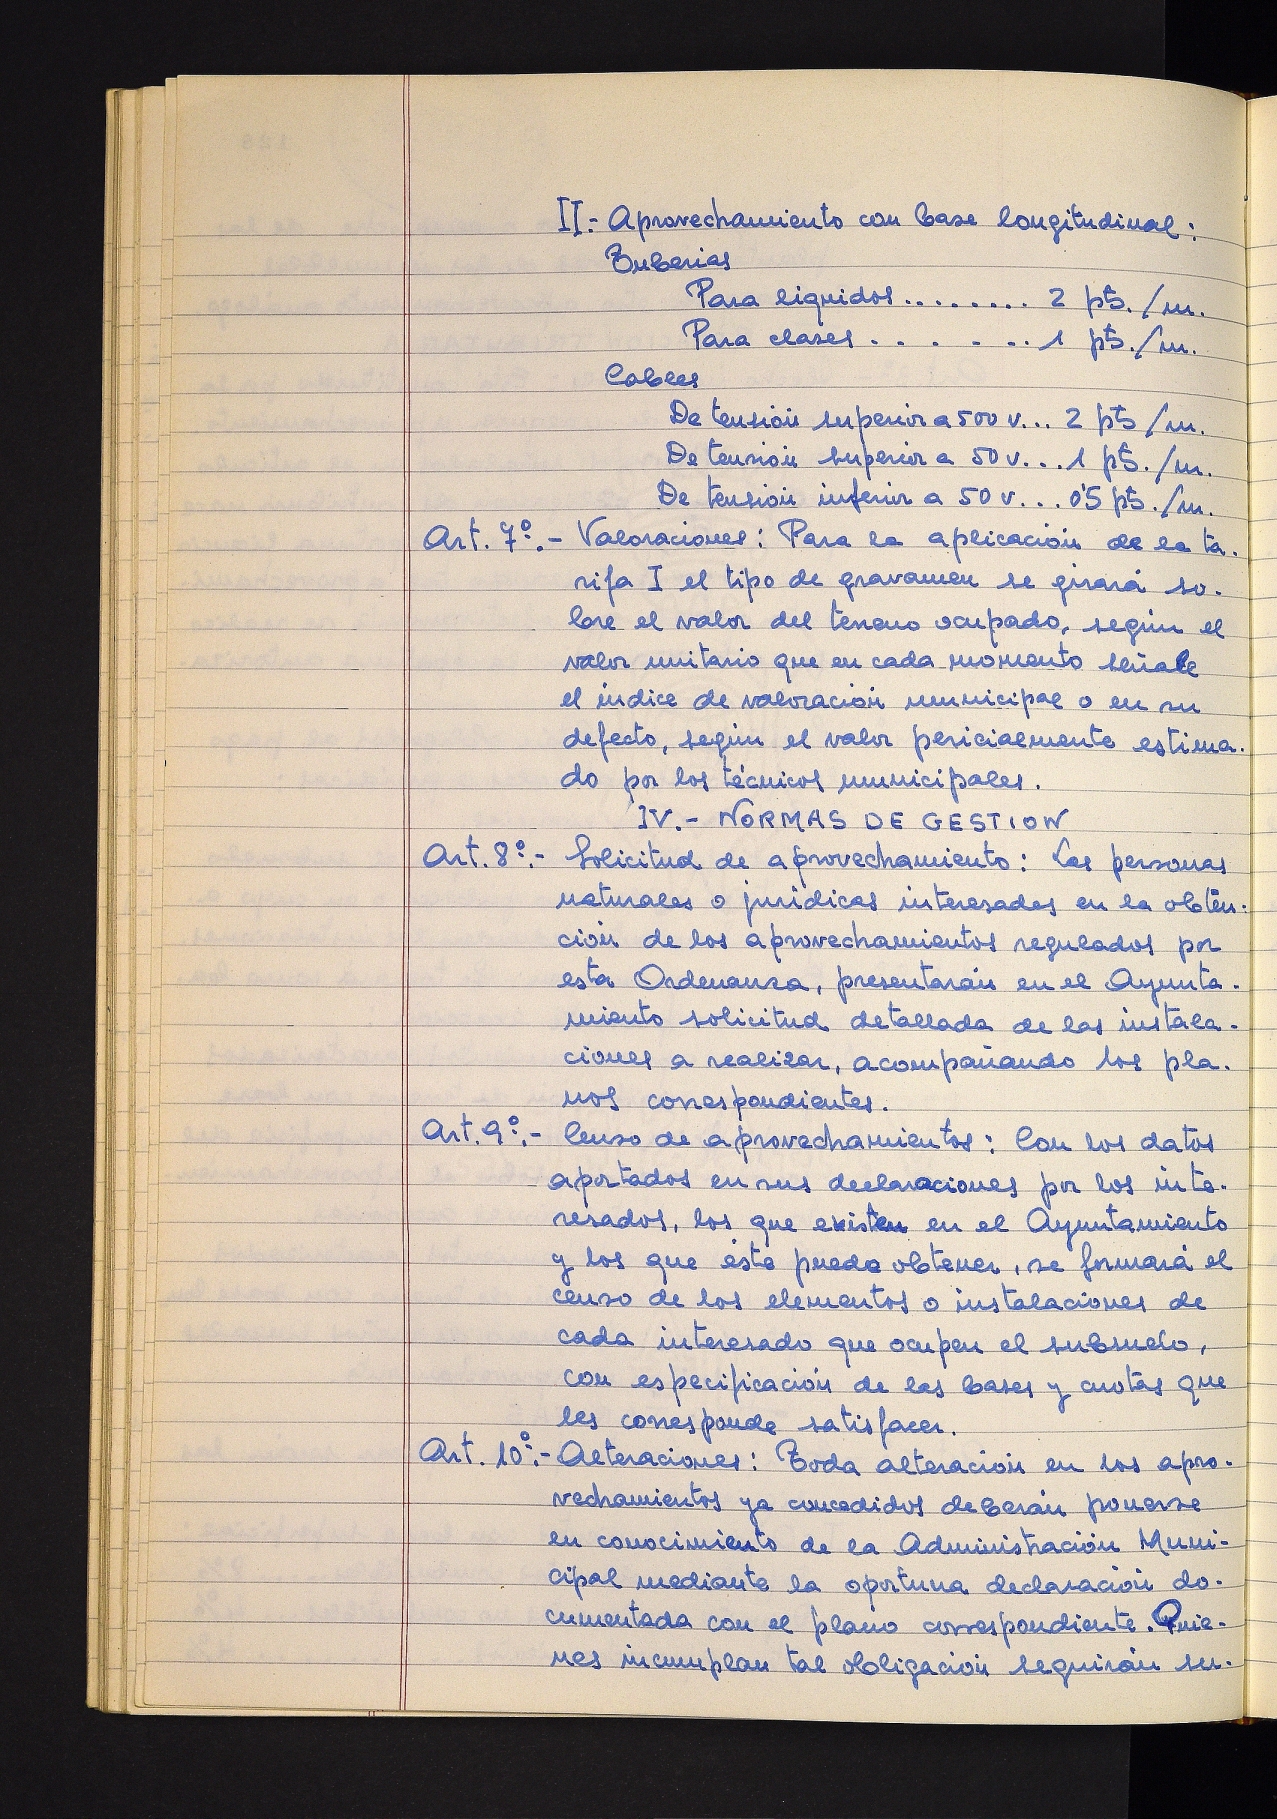 II.- Aprovechamiento con base longitudinal:
Tuberias
Para liquidos ........ 2 pts./m.
Para clases . . . . .. 1 pts./m.
Cables
De tensión superior a 500 v... 2 pts/m.
De tensión superior a 50 v... 1 pts./m.
De tensión inferior a 50 v... 0'5 pts./m.
Art. 7º.- Valoraciones: Para la aplicación de la ta-
rifa I el tipo de gravamen se girará so-
bre el valor del terreno ocupado, según el
valor unitario que en cada momento señale
el índice de valoración municipal o en su
defecto, según el valor pericialmente estima-
do por los técnicos municipales.
IV.- NORMAS DE GESTION
Art. 8º.- Solicitud de aprovechamiento: Las personas
naturales o jurídicas interesadas en la obten-
ción de los aprovechamientos regulados por
esta Ordenanza, presentarán en el Ayunta-
miento solicitud detallada de las instala-
ciones a realizar, acompañando los pla-
nos correspondientes.
Art. 9º.- Censo de aprovechamientos: Con los datos
aportados en sus declaraciones por los inte-
resados, los que existen en el Ayuntamiento
y los que éste pueda obtener, se formará el
censo de los elementos o instalaciones de
cada interesado que ocupen el subsuelo,
con especificación de las bases y cuotas que
les corresponde satisfacer.
Art. 10º.- Alteraciones: Toda alteración en los apro-
vechamientos ya concedidos deberán ponerse
en conocimiento de la Administración Muni-
cipal mediante la oportuna declaración do-
cumentada con el plano correspondiente. Quie-
nes incumplan tal obligación seguirán su-